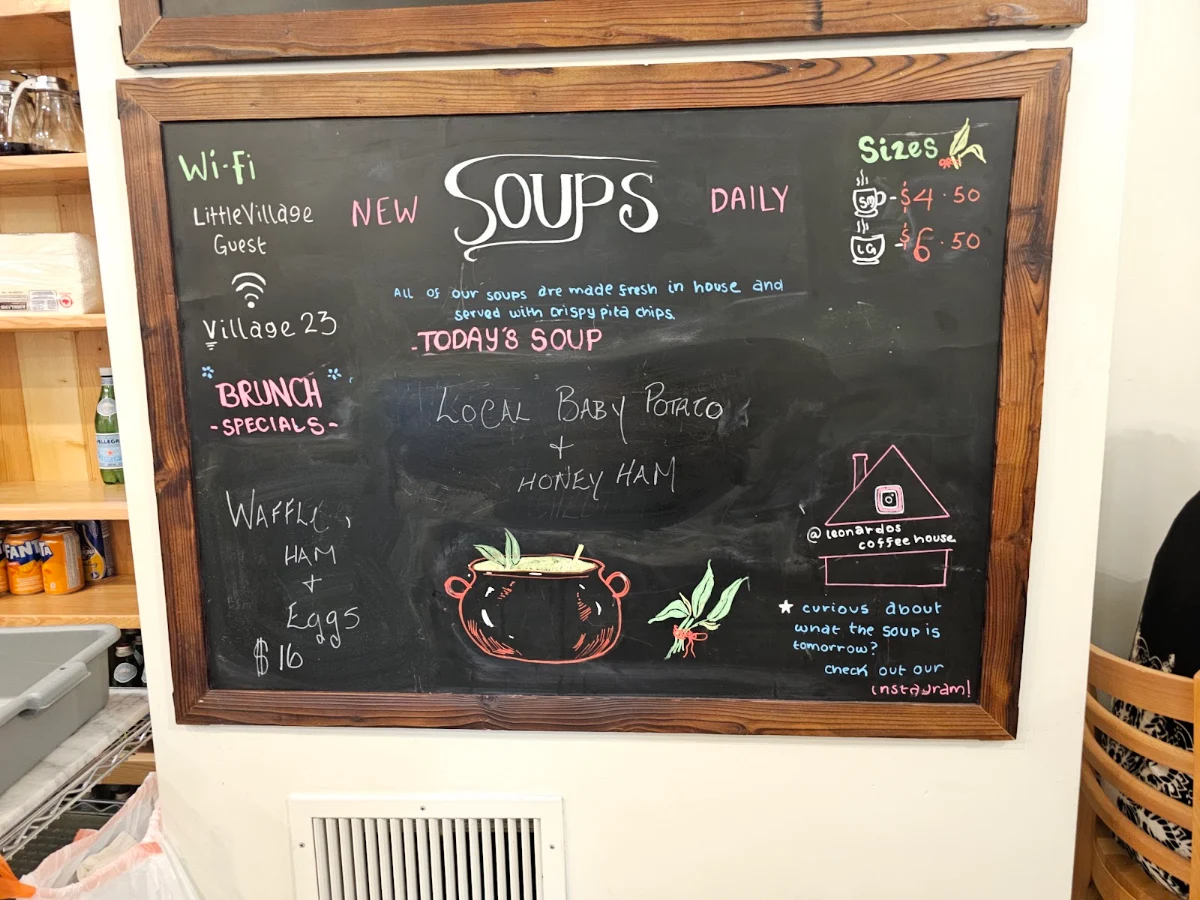 Wi-Fi
LittleVillage
Guest
Village 23
BRUNCH
-SPECIALS-
WAFFLE,
HAM
+
Eggs
$16
NEW SOUPS DAILY
All of our soups are made fresh in house and
served with crispy pita chips.
-TODAY'S SOUP
LOCAL BABY POTATO
+
HONEY HAM
Sizes
SM - $4.50
LG - $6.50
@leonardos
coffeehouse
curious about
what the soup is
tomorrow?
check out our
instagram!
FANTA